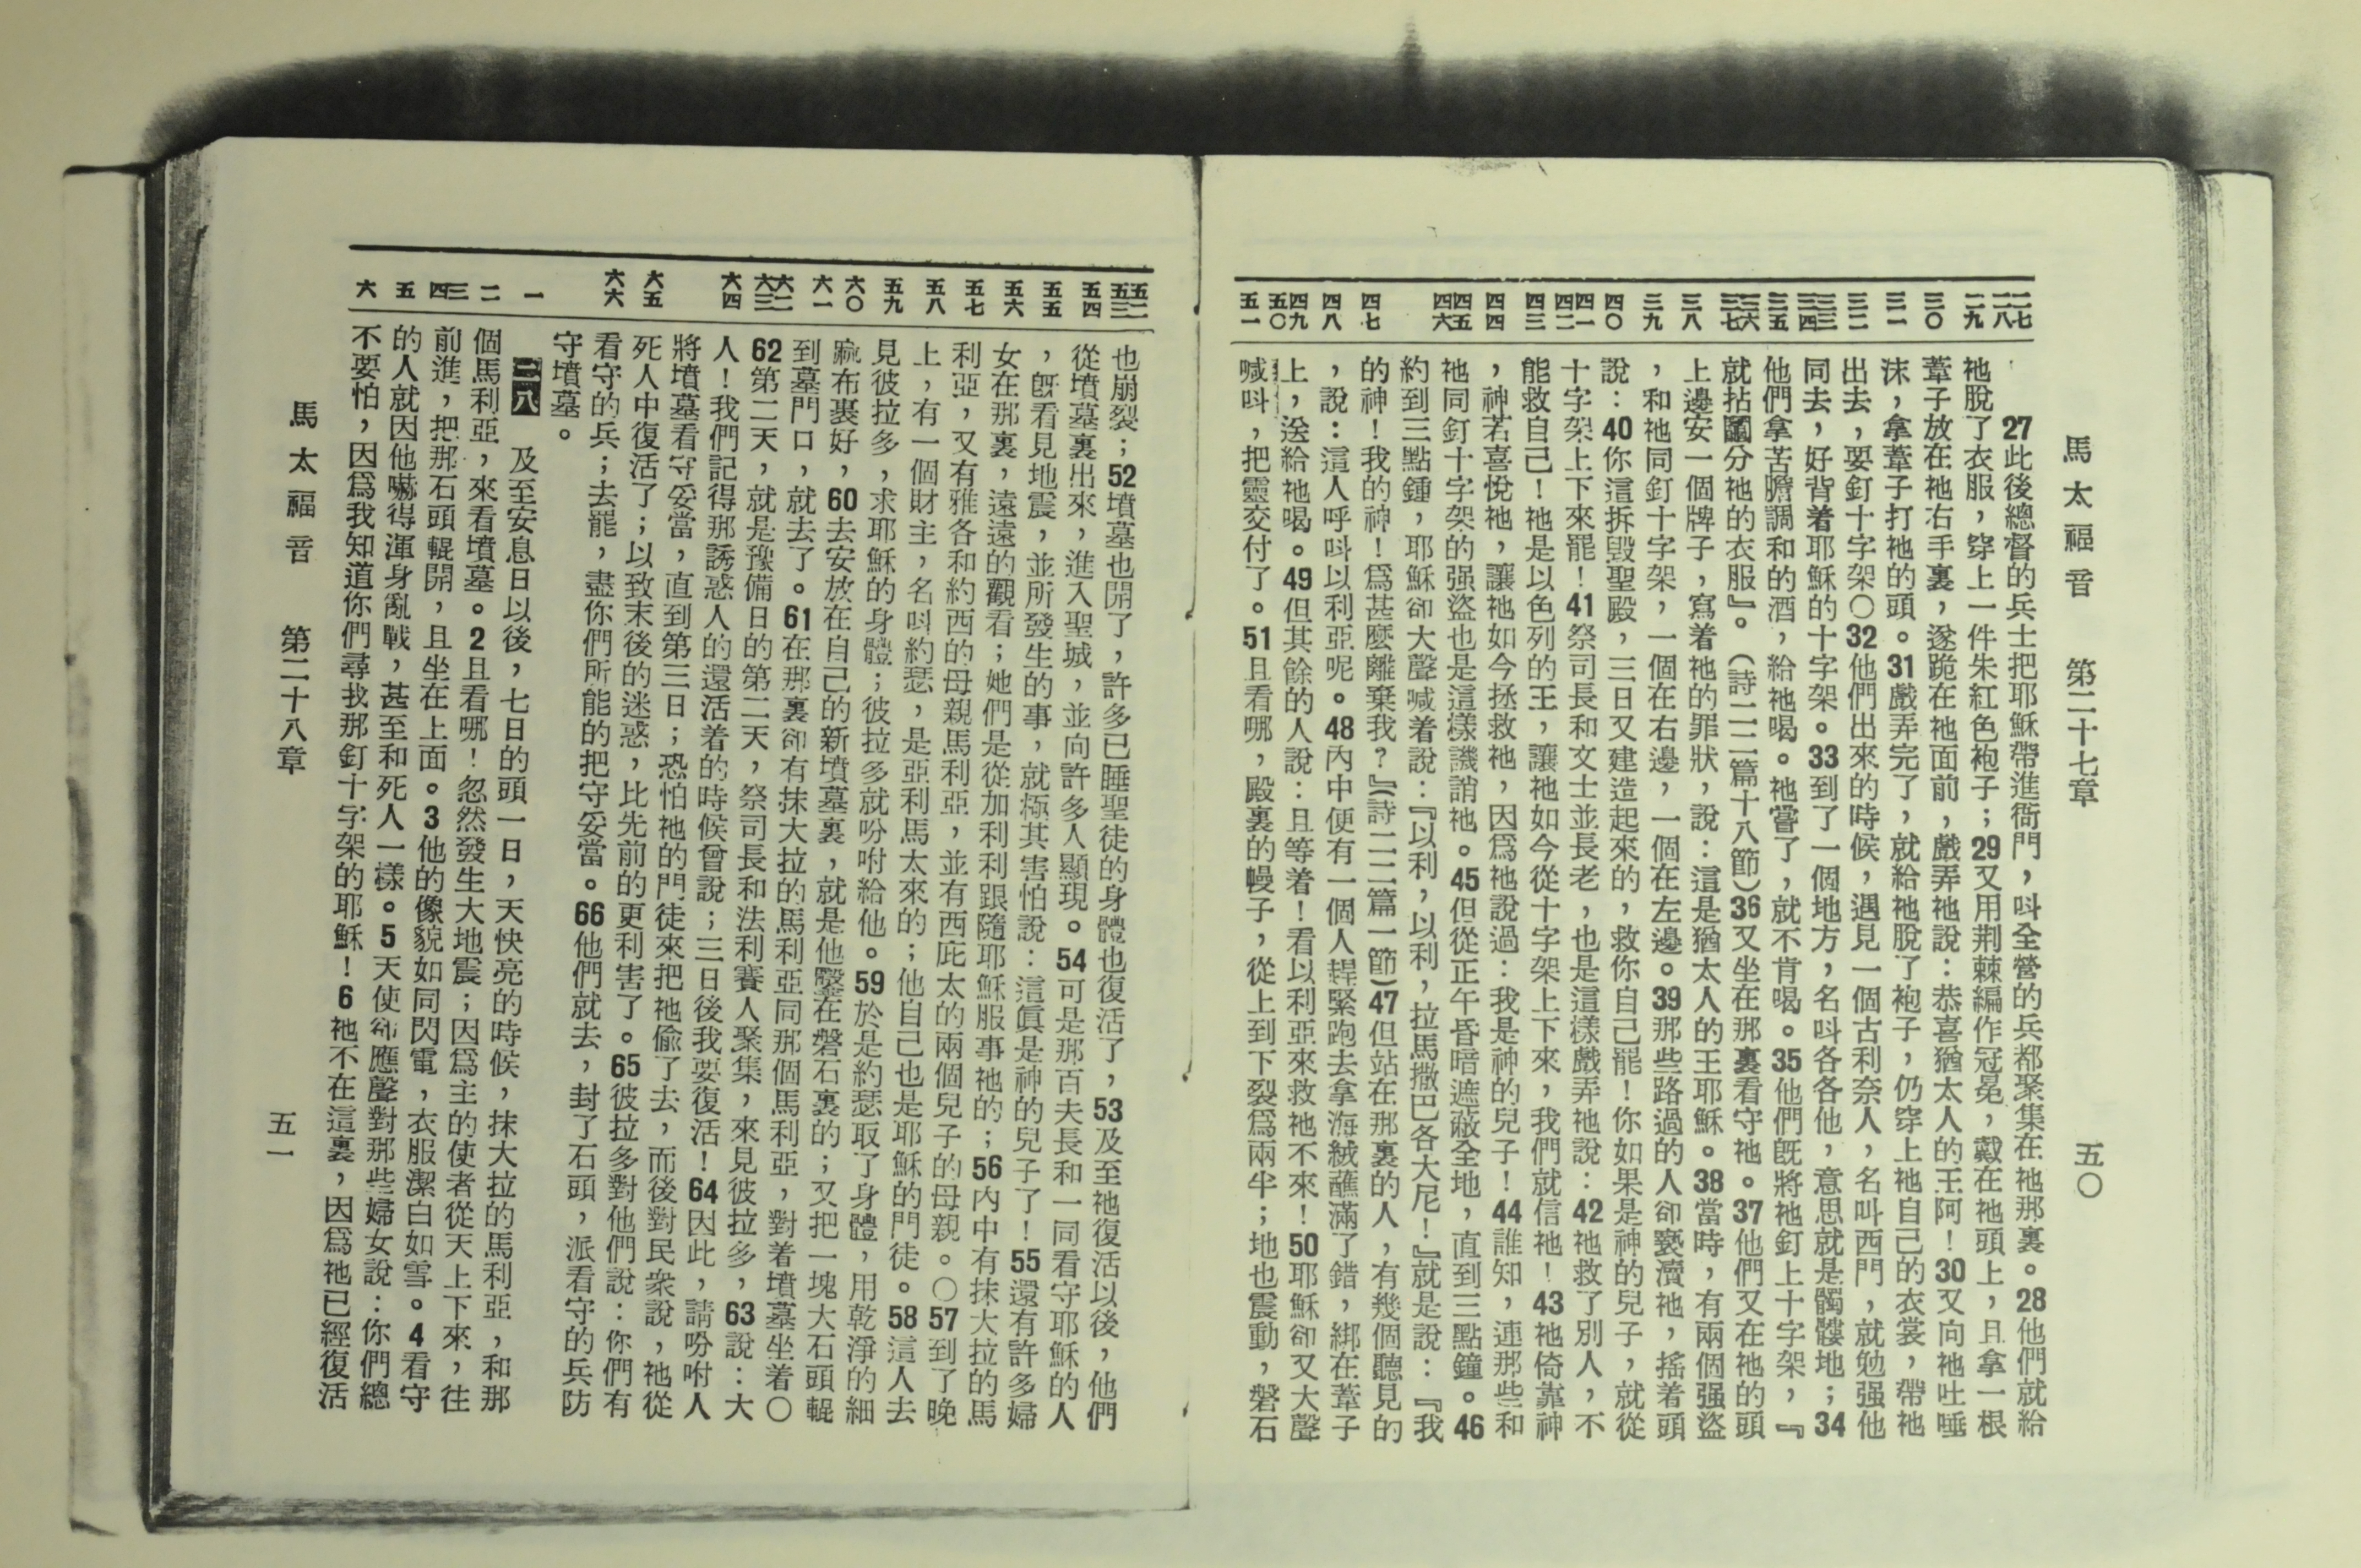 馬太福音　第二十七章　五〇
二七 二八 二九 三〇 三一 三二 三三 三四 三五 三六 三七 三八 三九 四〇 四一 四二 四三 四四 四五 四六 四七 四八 四九 五〇 五一
27此後總督的兵士把耶穌帶進衙門，呌全營的兵都聚集在祂那裏。28他們就給
祂脫了衣服，穿上一件朱紅色袍子；29又用荆棘編作冠冕，戴在祂頭上，且拿一根
葦子放在祂右手裏，遂跪在祂面前，戲弄祂說：恭喜猶太人的王阿！30又向祂吐唾
沫，拿葦子打祂的頭。31戲弄完了，就給祂脫了袍子，仍穿上祂自己的衣裳，帶祂
出去，要釘十字架〇32他們出來的時候，遇見一個古利奈人，名叫西門，就勉强他
同去，好背着耶穌的十字架。33到了一個地方，名呌各各他，意思就是髑髏地；34
他們拿苦膽調和的酒，給祂喝。祂嘗了，就不肯喝。35他們旣將祂釘上十字架，『
就拈鬮分祂的衣服』。（詩二二篇十八節）36又坐在那裏看守祂。37他們又在祂的頭
上邊安一個牌子，寫着祂的罪狀，說：這是猶太人的王耶穌。38當時，有兩個强盜
，和祂同釘十字架，一個在右邊，一個在左邊。39那些路過的人卻褻瀆祂，搖着頭
說：40你這拆毀聖殿，三日又建造起來的，救你自己罷！你如果是神的兒子，就從
十字架上下來罷！41祭司長和文士並長老，也是這樣戲弄祂說：42祂救了別人，不
能救自己！祂是以色列的王，讓祂如今從十字架上下來，我們就信祂！43祂倚靠神
，神若喜悅祂，讓祂如今拯救祂，因爲祂說過：我是神的兒子！44誰知，連那些和
祂同釘十字架的强盜也是這樣譏誚祂。45但從正午昏暗遮蔽全地，直到三點鐘。46
約到三點鍾，耶穌卻大聲喊着說：『以利，以利，拉馬撒巴各大尼！』就是說：『我
的神！我的神！爲甚麼離棄我？』（詩二二篇一節）47但站在那裏的人，有幾個聽見的
，說：這人呼呌以利亞呢。48內中便有一個人趕緊跑去拿海絨蘸滿了錯，綁在葦子
上，送給祂喝。49但其餘的人說：且等着！看以利亞來救祂不來！50耶穌卻又大聲
喊呌，把靈交付了。51且看哪，殿裏的幔子，從上到下裂爲兩半；地也震動，磐石
五二 五三 五四 五五 五六 五七 五八 五九 六〇 六一 六二 六三 六四 六五 六六 一 二 三 四 五 六
也崩裂；52墳墓也開了，許多已睡聖徒的身體也復活了，53及至祂復活以後，他們
從墳墓裏出來，進入聖城，並向許多人顯現。54可是那百夫長和一同看守耶穌的人
，旣看見地震，並所發生的事，就極其害怕說：這眞是神的兒子了！55還有許多婦
女在那裏，遠遠的觀看；她們是從加利利跟隨耶穌服事祂的；56內中有抹大拉的馬
利亞，又有雅各和約西的母親馬利亞，並有西庇太的兩個兒子的母親。〇57到了晚
上，有一個財主，名呌約瑟，是亞利馬太來的；他自己也是耶穌的門徒。58這人去
見彼拉多，求耶穌的身體；彼拉多就吩咐給他。59於是約瑟取了身體，用乾淨的細
蔴布裹好，60去安放在自己的新墳墓裏，就是他鑿在磐石裏的；又把一塊大石頭輥
到墓門口，就去了。61在那裏卻有抹大拉的馬利亞同那個馬利亞，對着墳墓坐着〇
62第二天，就是豫備日的第二天，祭司長和法利賽人聚集，來見彼拉多，63說：大
人！我們記得那誘惑人的還活着的時候曾說；三日後我要復活！64因此，請吩咐人
將墳墓看守妥當，直到第三日；恐怕祂的門徒來把祂偷了去，而後對民衆說，祂從
死人中復活了；以致末後的迷惑，比先前的更利害了。65彼拉多對他們說：你們有
看守的兵；去罷，盡你們所能的把守妥當。66他們就去，封了石頭，派看守的兵防
守墳墓。
二八　及至安息日以後，七日的頭一日，天快亮的時候，抹大拉的馬利亞，和那
個馬利亞，來看墳墓。2且看哪！忽然發生大地震；因爲主的使者從天上下來，往
前進，把那石頭輥開，且坐在上面。3他的像貌如同閃電，衣服潔白如雪。4看守
的人就因他嚇得渾身亂戰，甚至和死人一樣。5天使卻應聲對那些婦女說：你們總
不要怕，因爲我知道你們尋找那釘十字架的耶穌！6祂不在這裏，因爲祂已經復活
馬太福音　第二十八章　五一